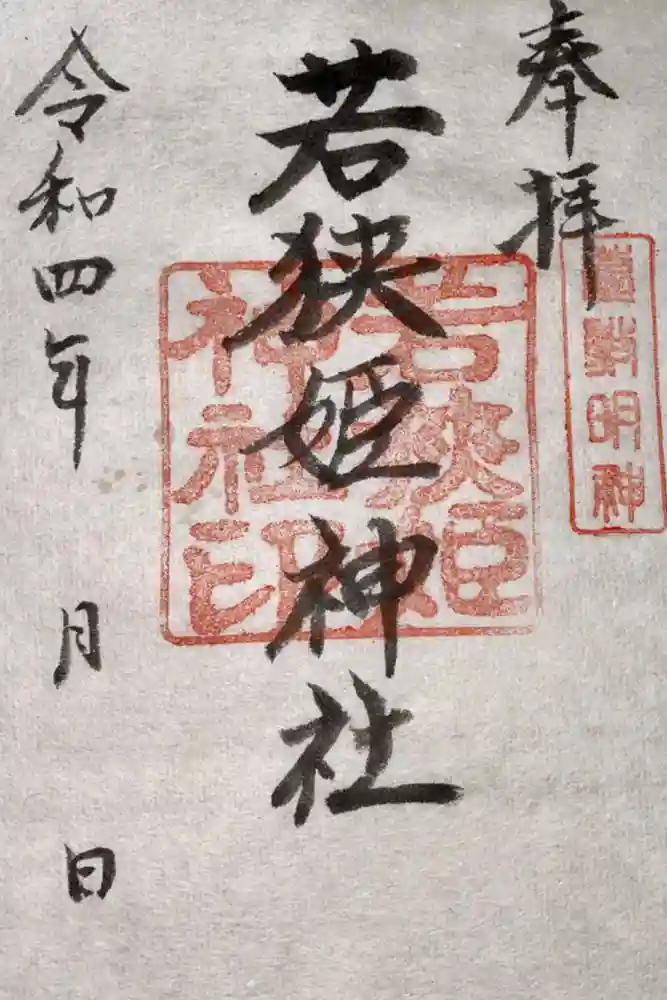 奉拝
遠敷明神
若狭姫神社
若狭姫
神社印
令和四年 月 日